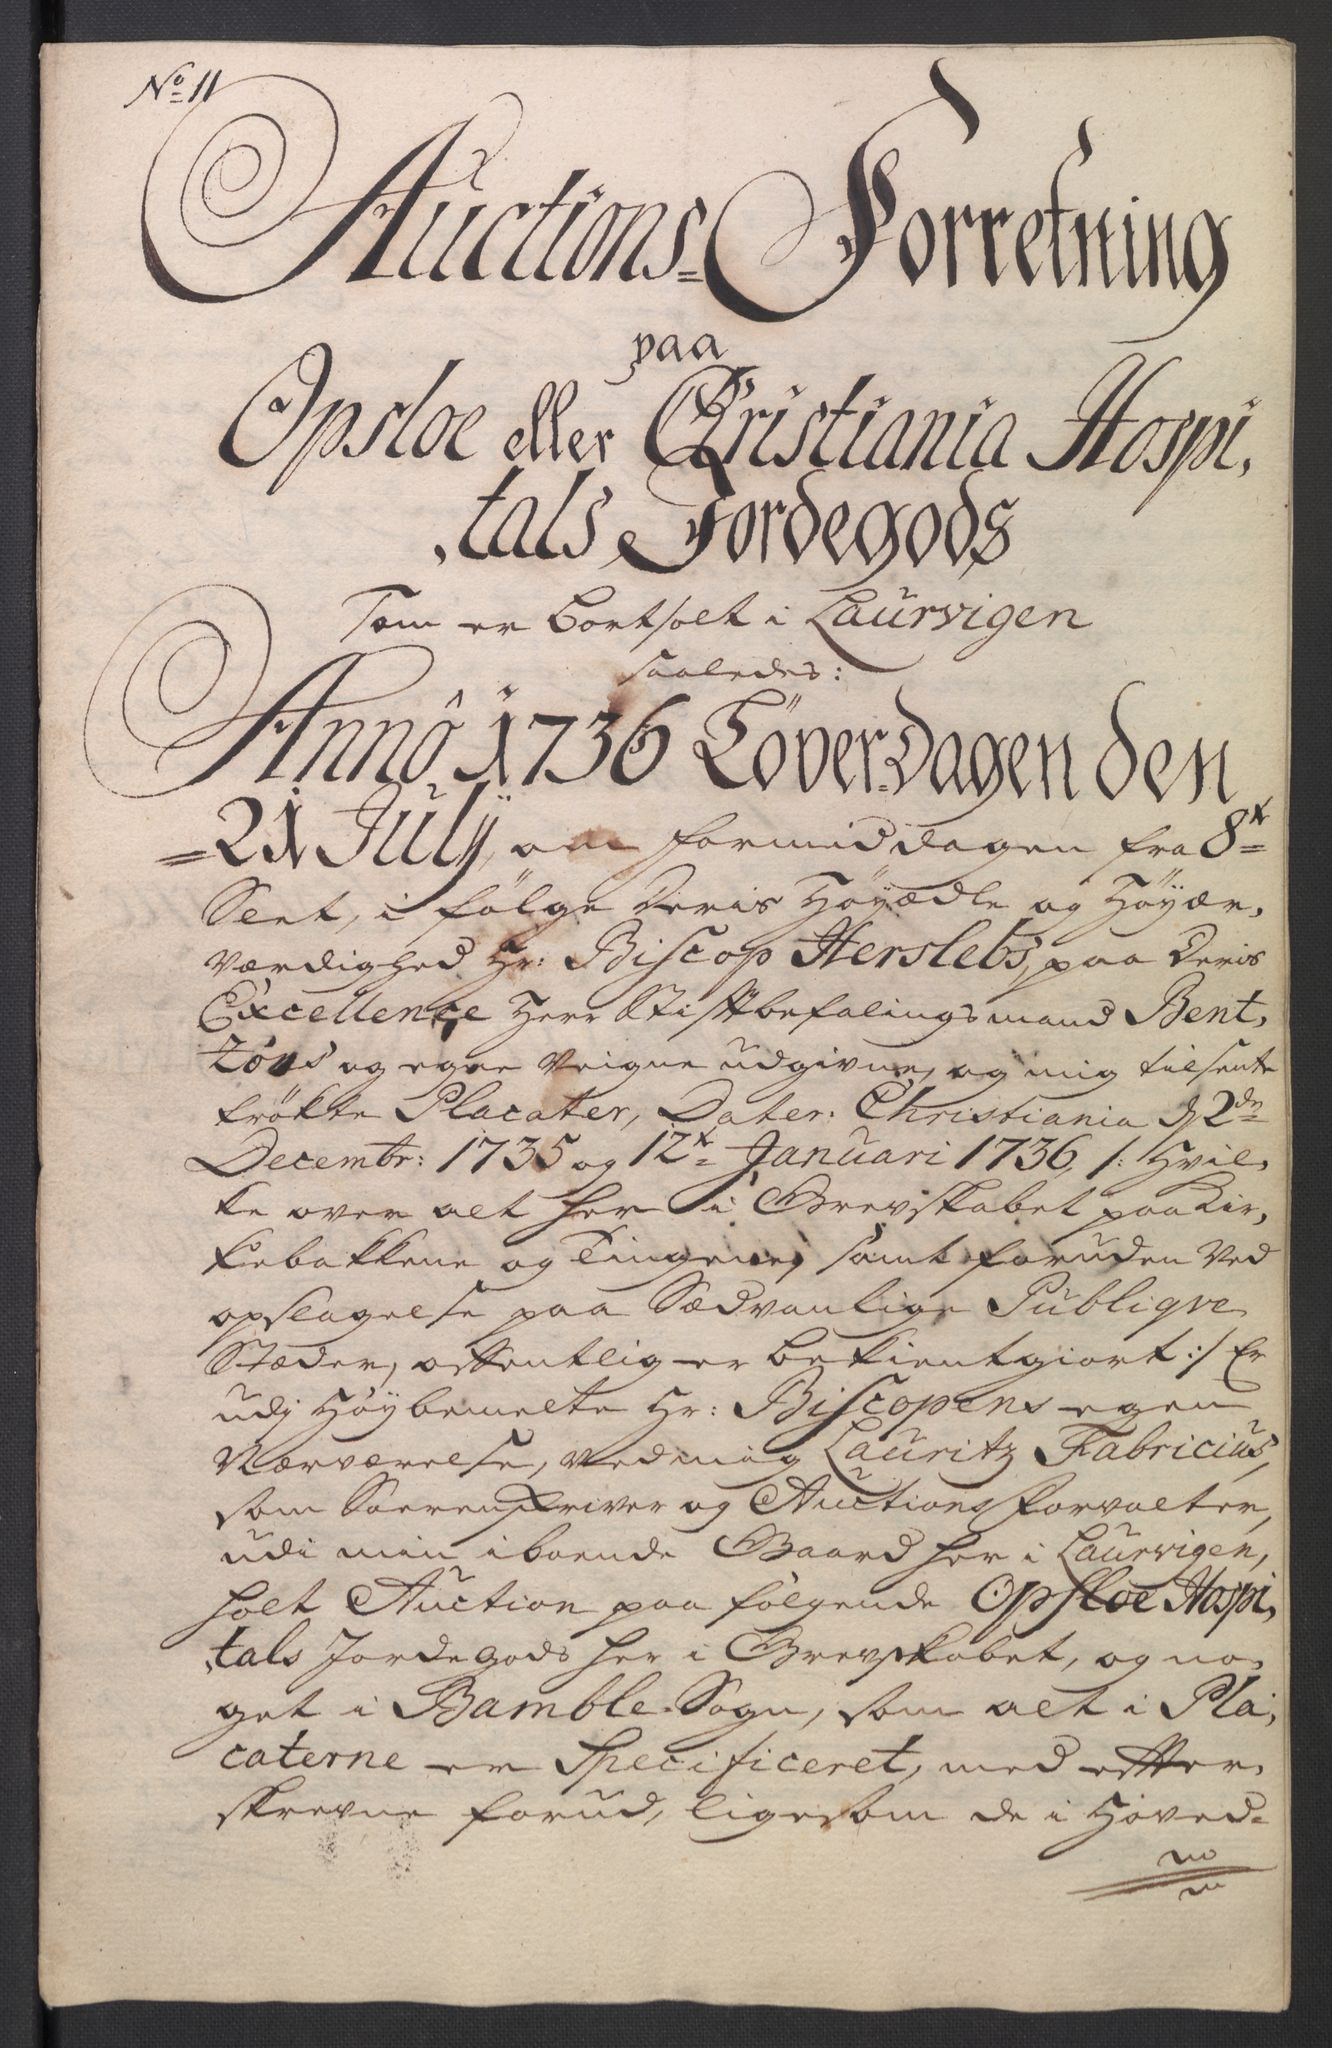 No 11
Auctions=Forretning
paa
Opsloe eller Christiania Hospi,
,tals Jordegods
Som er bortsolt i Laurvigen
saaledes:
Anno 1736 Löverdagen den
=21 July, om formiddagen fra 8te
Slet, i fölge Deris Höyædle og Höyær,
værdighed Hr: Biscop Herslebs, paa Deris
Excellence Herr Stiftbefalingsmand Bent,
zöns og egne Veigne udgivne, og mig tilsente
trökte Placater, Dater: Christiania d 2den
Decembr: 1735 og 12te Januari 1736, /: Hvil,
ke over alt her i Grevskabet paa Kir,
kebakkene og Tingene, samt foruden ved
opslagelse paa Sædvanlige Publiqve
Stæder, offentlig er bekientgiort :/ Er
udj Höybemelte Hr: Biscopens egen
Nærværelse, ved mig Lauritz Fabricius,
som Sorenskriver og Auctionsforvalter,
udi min iboende Gaard her i Laurvigen,
holt Auction paa fölgende Opsloe Hospi,
,tals Jordegods her i Grevskabet, og no,
get i Bamble Sogn, som alt i Pla,
caterne er Specificeret, med efter,
skrevne forud, ligesom de i Hoved=